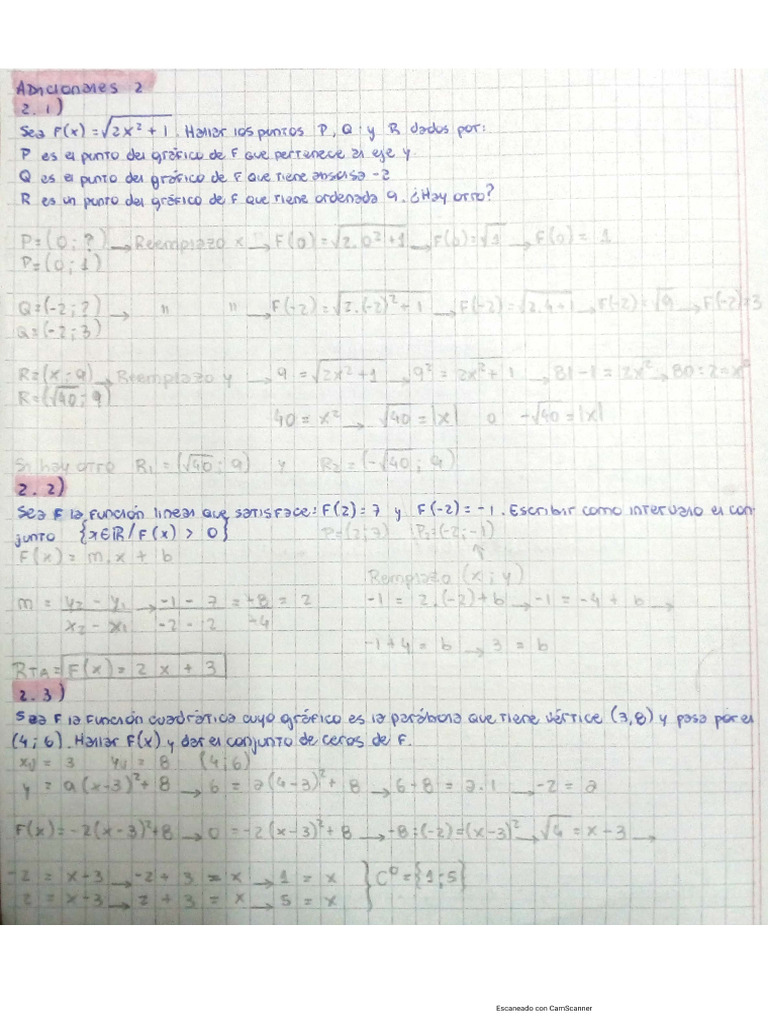 Adicionales 2
2.1)
Sea F(x) = √2x² + 1. Hallar los puntos P, Q y R dados por:
P es el punto del gráfico de F que pertenece al eje y
Q es el punto del gráfico de F que tiene abscisa -2
R es un punto del gráfico de F que tiene ordenada 9. ¿Hay otro?
P=(0;?) → Reemplazo x → F(0) = √2.0²+1 → F(0) = √1 → F(0) = 1
P=(0;1)
Q=(-2;?) → " " → F(-2) = √2.(-2)²+1 → F(-2) = √2.4+1 → F(-2) = √9 → F(-2)=3
Q=(-2;3)
R=(x;9) → Reemplazo y → 9 = √2x²+1 → 9² = 2x²+1 → 81-1 = 2x² → 80:2=x²
R=(√40;9)
40 = x² → √40 = |x| o -√40 = |x|
Si hay otro R₁ = (√40; 9) y R₂ = (-√40; 9)
2.2)
Sea F la función lineal que satisface: F(2) = 7 y F(-2) = -1. Escribir como intervalo el con-
junto {x∈ℝ/F(x) > 0} P=(2;7) P₂=(-2;-1)
F(x) = m.x + b
Remplazo (x;y)
m = y₂ - y₁ / x₂ - x₁ → -1 - 7 / -2 - 2 = -8 / -4 = 2 -1 = 2.(-2)+b → -1 = -4 + b →
-1+4 = b → 3 = b
RTA = F(x) = 2x + 3
2.3)
Sea F la función cuadrática cuyo gráfico es la parábola que tiene vértice (3,8) y pasa por el
(4;6). Hallar F(x) y dar el conjunto de ceros de F.
xv = 3 yv = 8 (4;6)
y = a(x-3)²+8 → 6 = a(4-3)²+8 → 6-8 = a.1 → -2 = a
F(x) = -2(x-3)²+8 → 0 = -2(x-3)²+8 → -8:(-2)=(x-3)² → √4 = x-3 →
-2 = x-3 → -2+3 = x → 1 = x } C⁰={1;5}
2 = x-3 → 2+3 = x → 5 = x
Escaneado con CamScanner